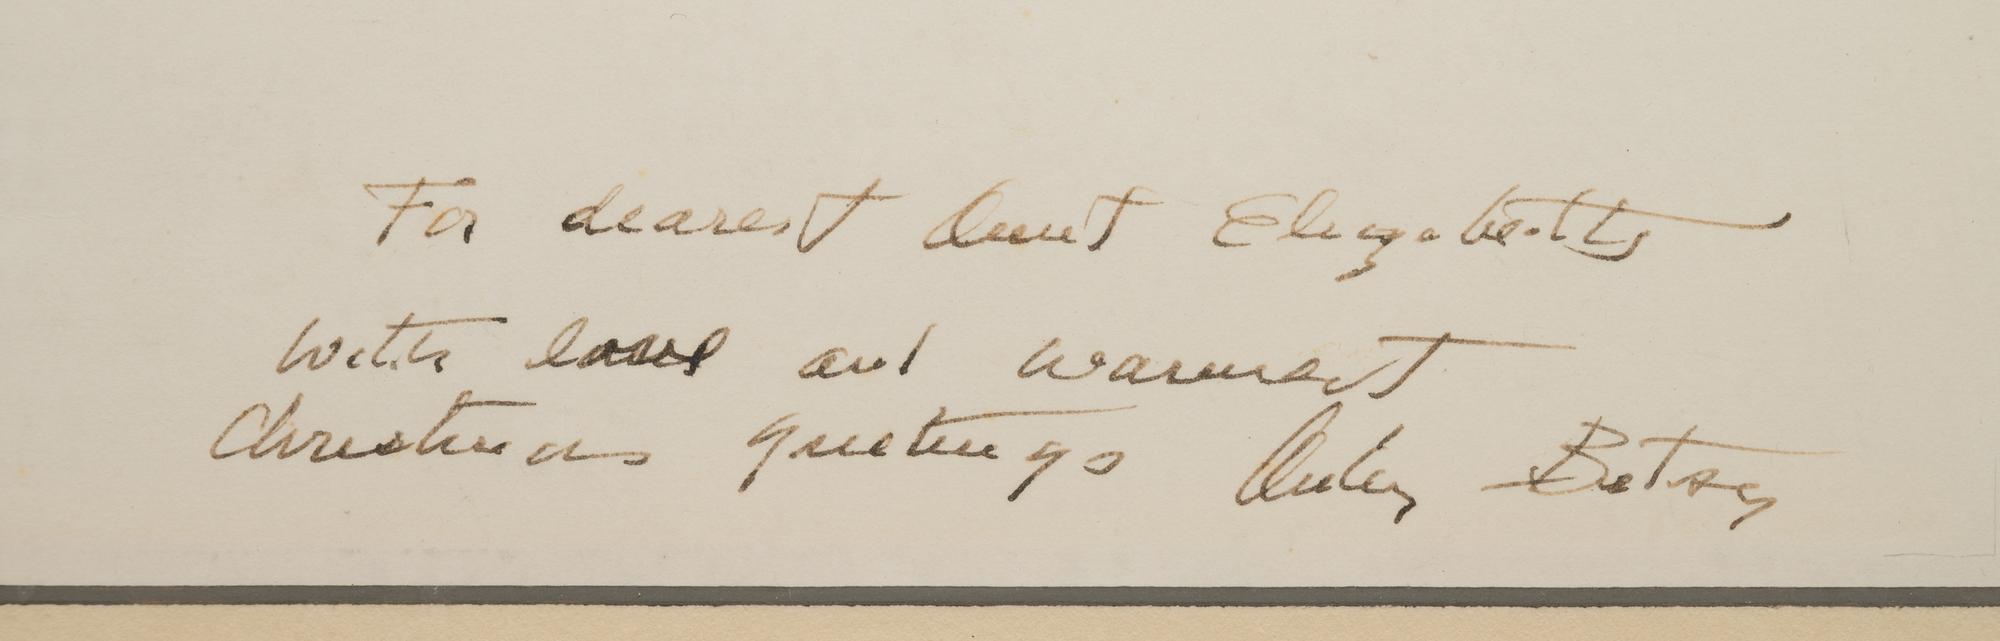 For dearest Aunt Elizabeth
with love and warmest
Christmas greetings Andy Betsy